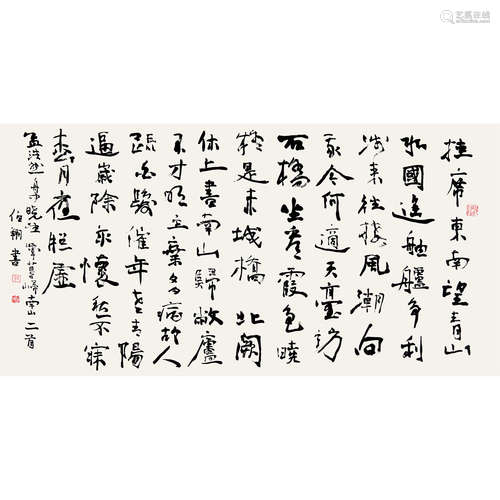 挂席東南望青山
水國遥舳艫争利
涉来往接風潮問
我今何適天臺訪
石橋坐看霞色曉
疑是赤城橋 北闕
休上書南山歸敝廬
不才明主棄多病故人
疏白髮催年老青陽
逼歲除永懷愁不寐
松月夜牕虚
孟浩然舟晓望 歲暮歸南山二首
伯翔書
艺狐在线
artfoxlive.com